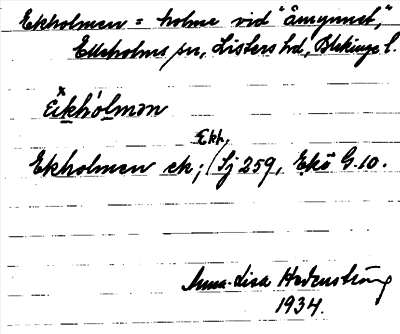 Ekholmen = holme vid "åmynnet,"
Elleholms sn, Listers hd, Blekinge l.
ë̀khólmən
Ekh.
Ekholmen ek; (Sj 259, Ekö G.10.
Anna-Lisa Hedenström
1934.